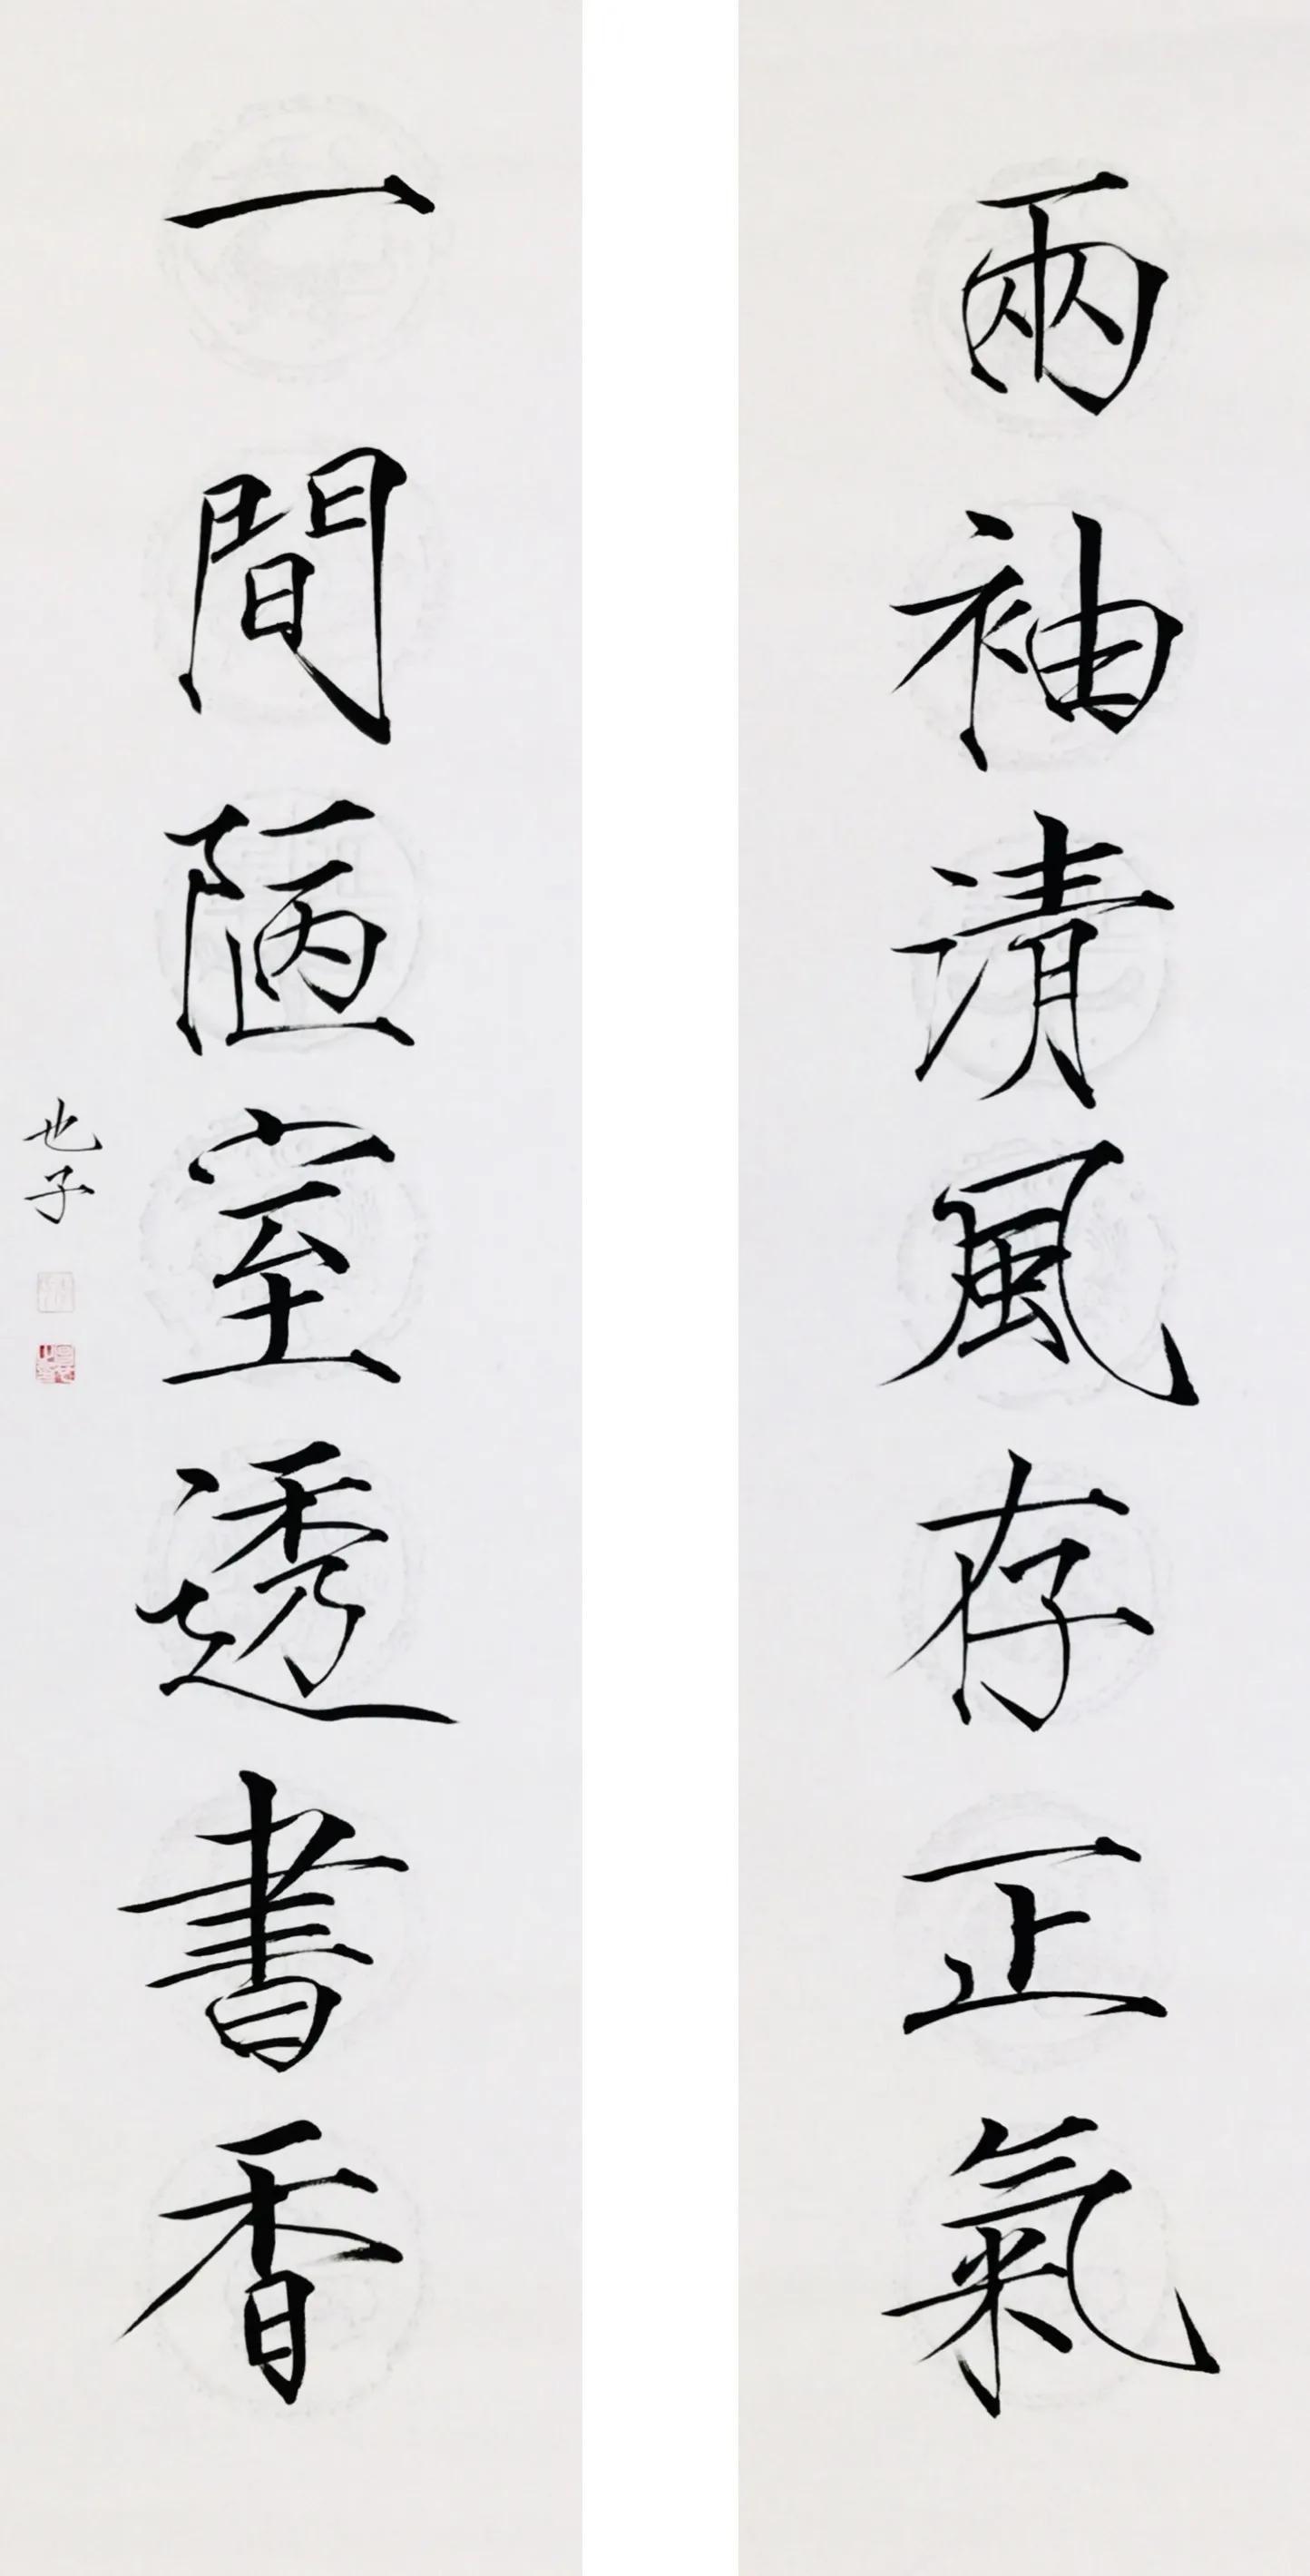 兩袖清風存正氣
一間陋室透書香
也子